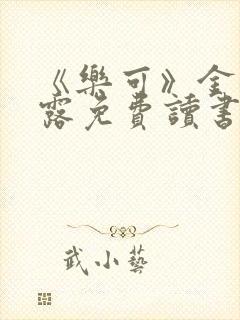 《樂可》金
露免費讀書
武小藝